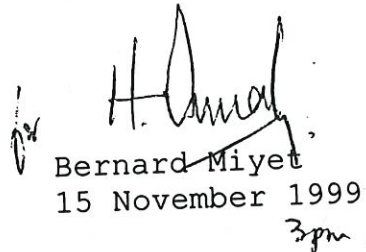 for H. Annabi
Bernard Miyet
15 November 1999
3pm